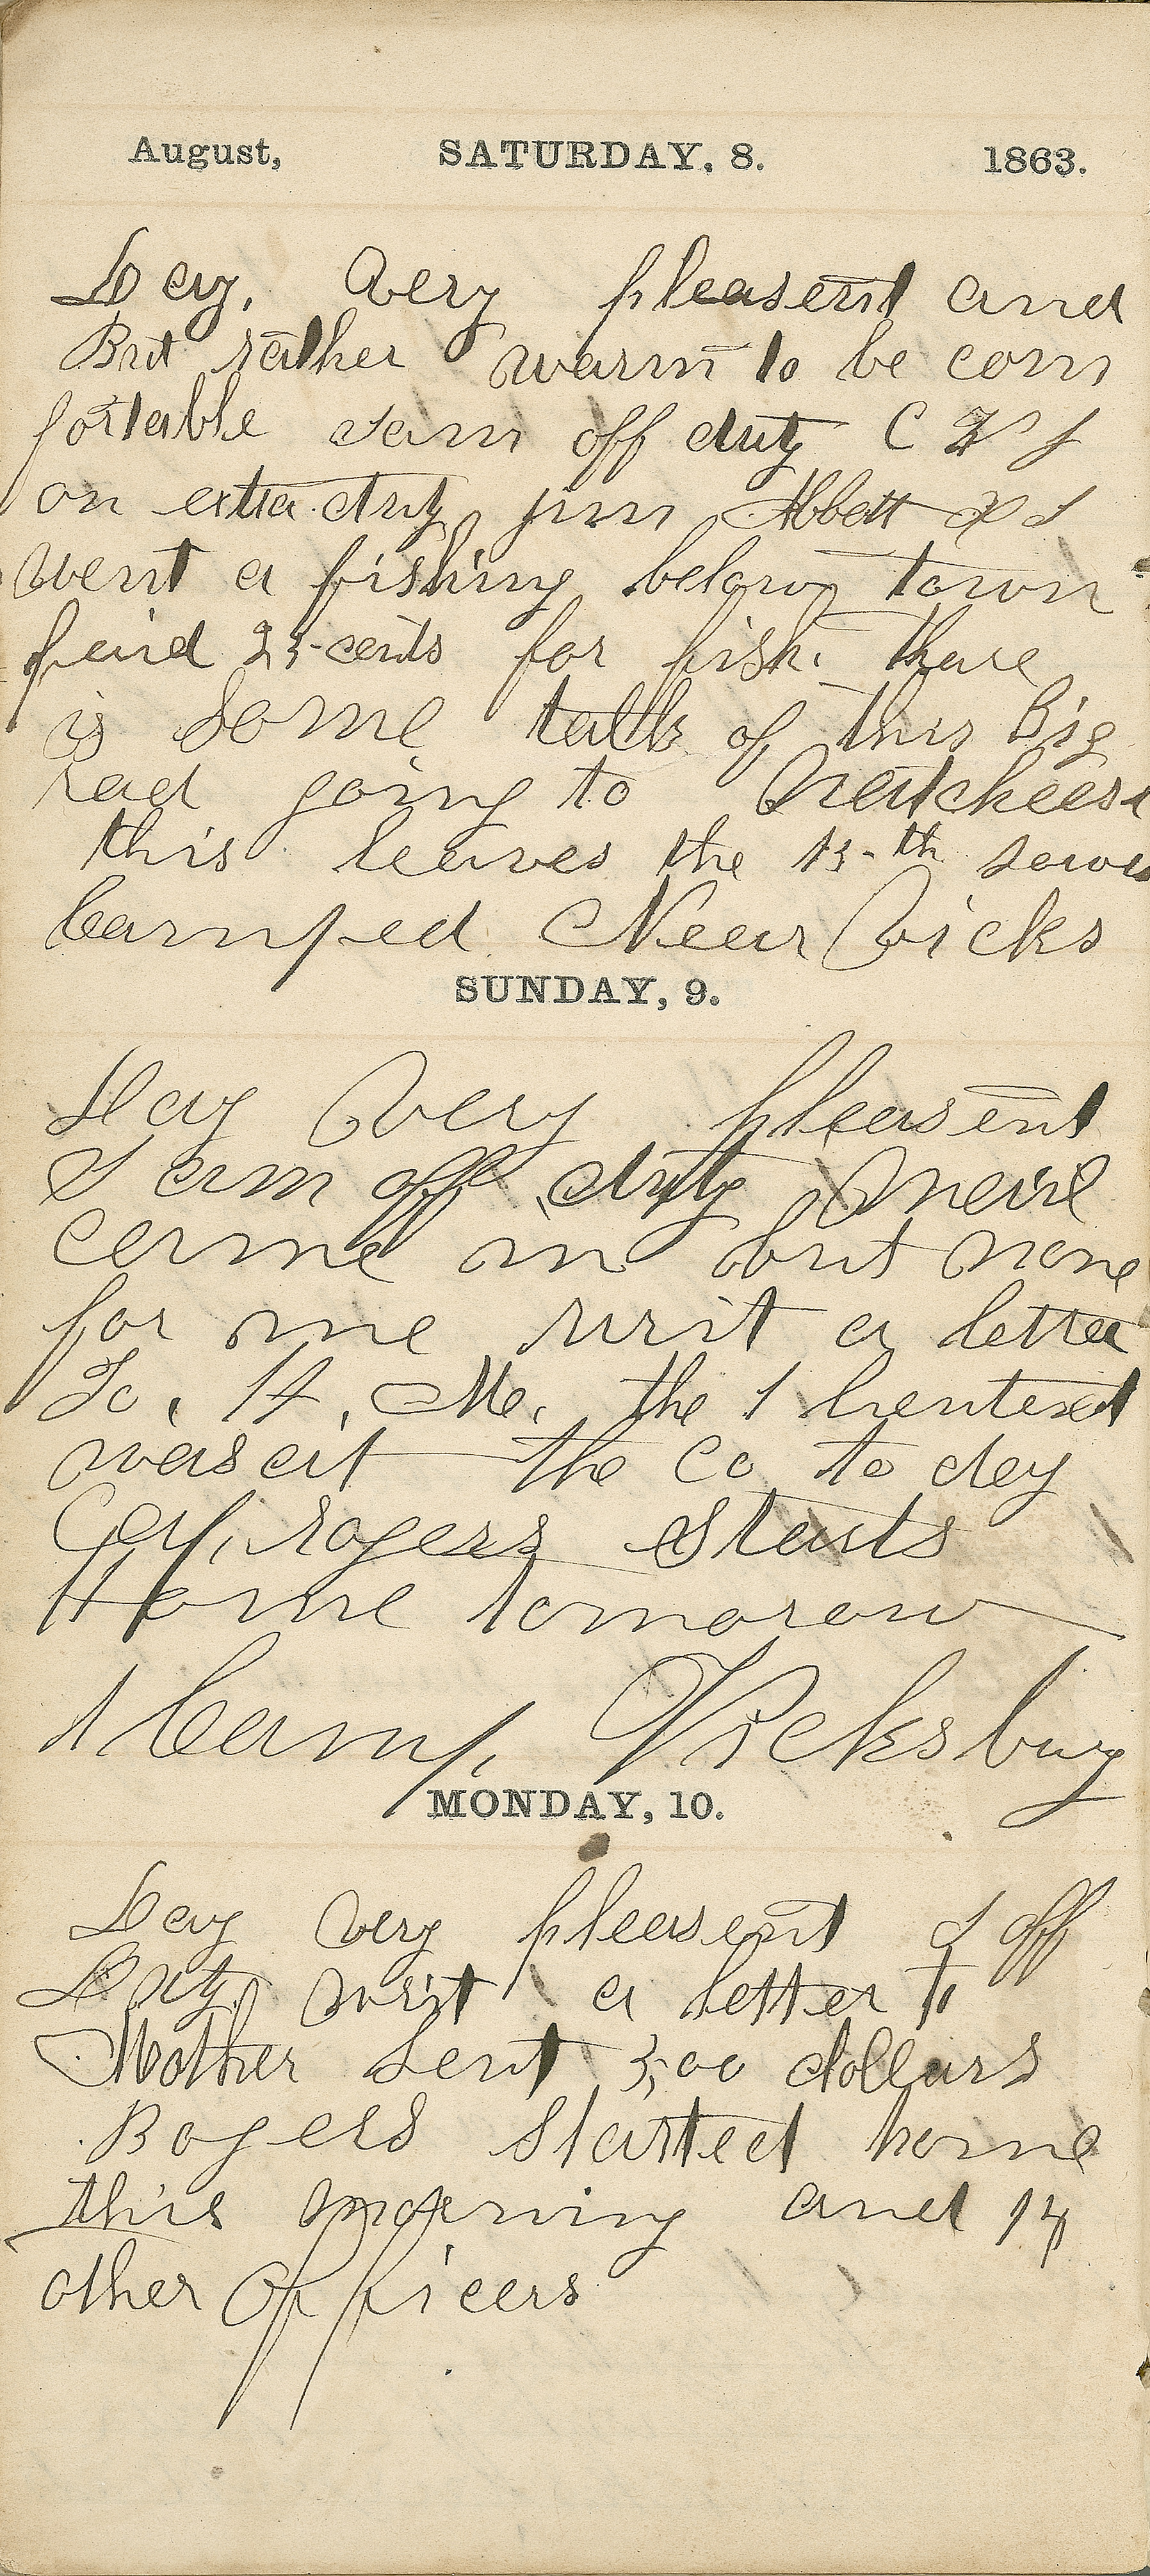 August, SATURDAY, 8. 1863.
Day, very pleasent and
But rather warm to be com
fortable I am off duty C
on extra duty jim Abbott & I
went a fishing below town
paid 25 cents for fish. thare
is Some talk of this Big
rad going to Natcheese
this leaves the 15th Iowa
Camped Near Vicks
SUNDAY, 9.
Day Very pleasent
I am off duty Maile
came in but none
for me writ a letter
To, H, Mc. the 1 lieutenet
was at the Co to day
Cap, rogers Starts
Home tomorow
Camp, Vicksburg
MONDAY, 10.
Day very pleasent I off
Duty writ a letter to
Mother Sent 5,00 dollars
Rogers Started home
this morning and 14
other Officers